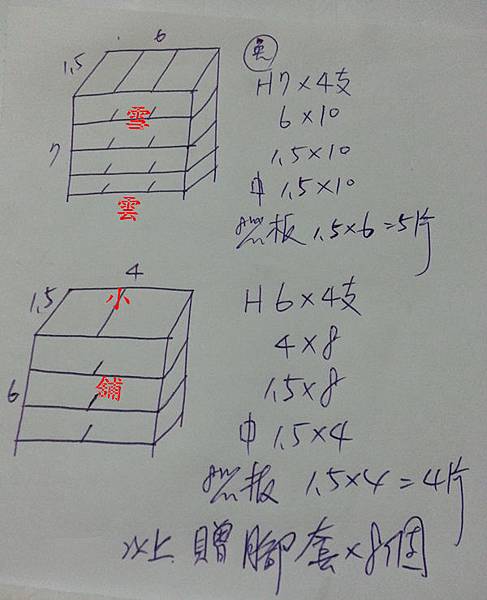 6
1.5
7
雪
雲
H7×4支
6×10
1.5×10
中 1.5×10
層板 1.5×6=5片
4
1.5
6
小
舖
H6×4支
4×8
1.5×8
中 1.5×4
層板 1.5×4=4片
以上贈腳套×8個